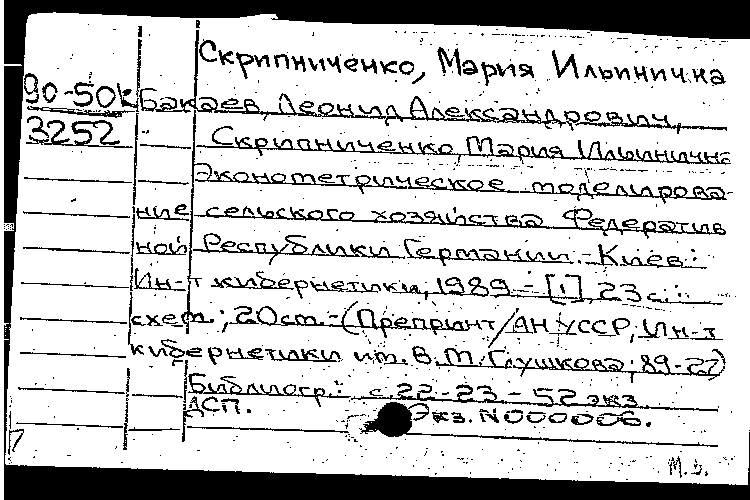 Скрипниченко, Мария Ильинична
90-50к Бакаев, Леонид Александрович,
3252 Скрипниченко, Мария Ильинична
Эконометрическое моделирова-
ние сельского хозяйства Федератив
ной Республики Германии.-Киев:
Ин-т кибернетики, 1989.-[1], 23 с.:
схем.; 20 см.-(Препринт/АН УССР, Ин-т
кибернетики им. В.М. Глушкова; 89-27)
Библиогр.: с. 22-23 - 52 экз.
ДСП. Экз. N000006.